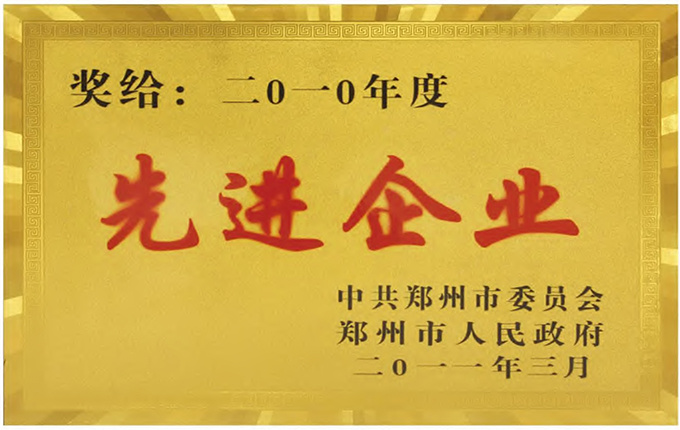 奖给：二0一0年度
先进企业
中共郑州市委员会
郑州市人民政府
二0一一年三月